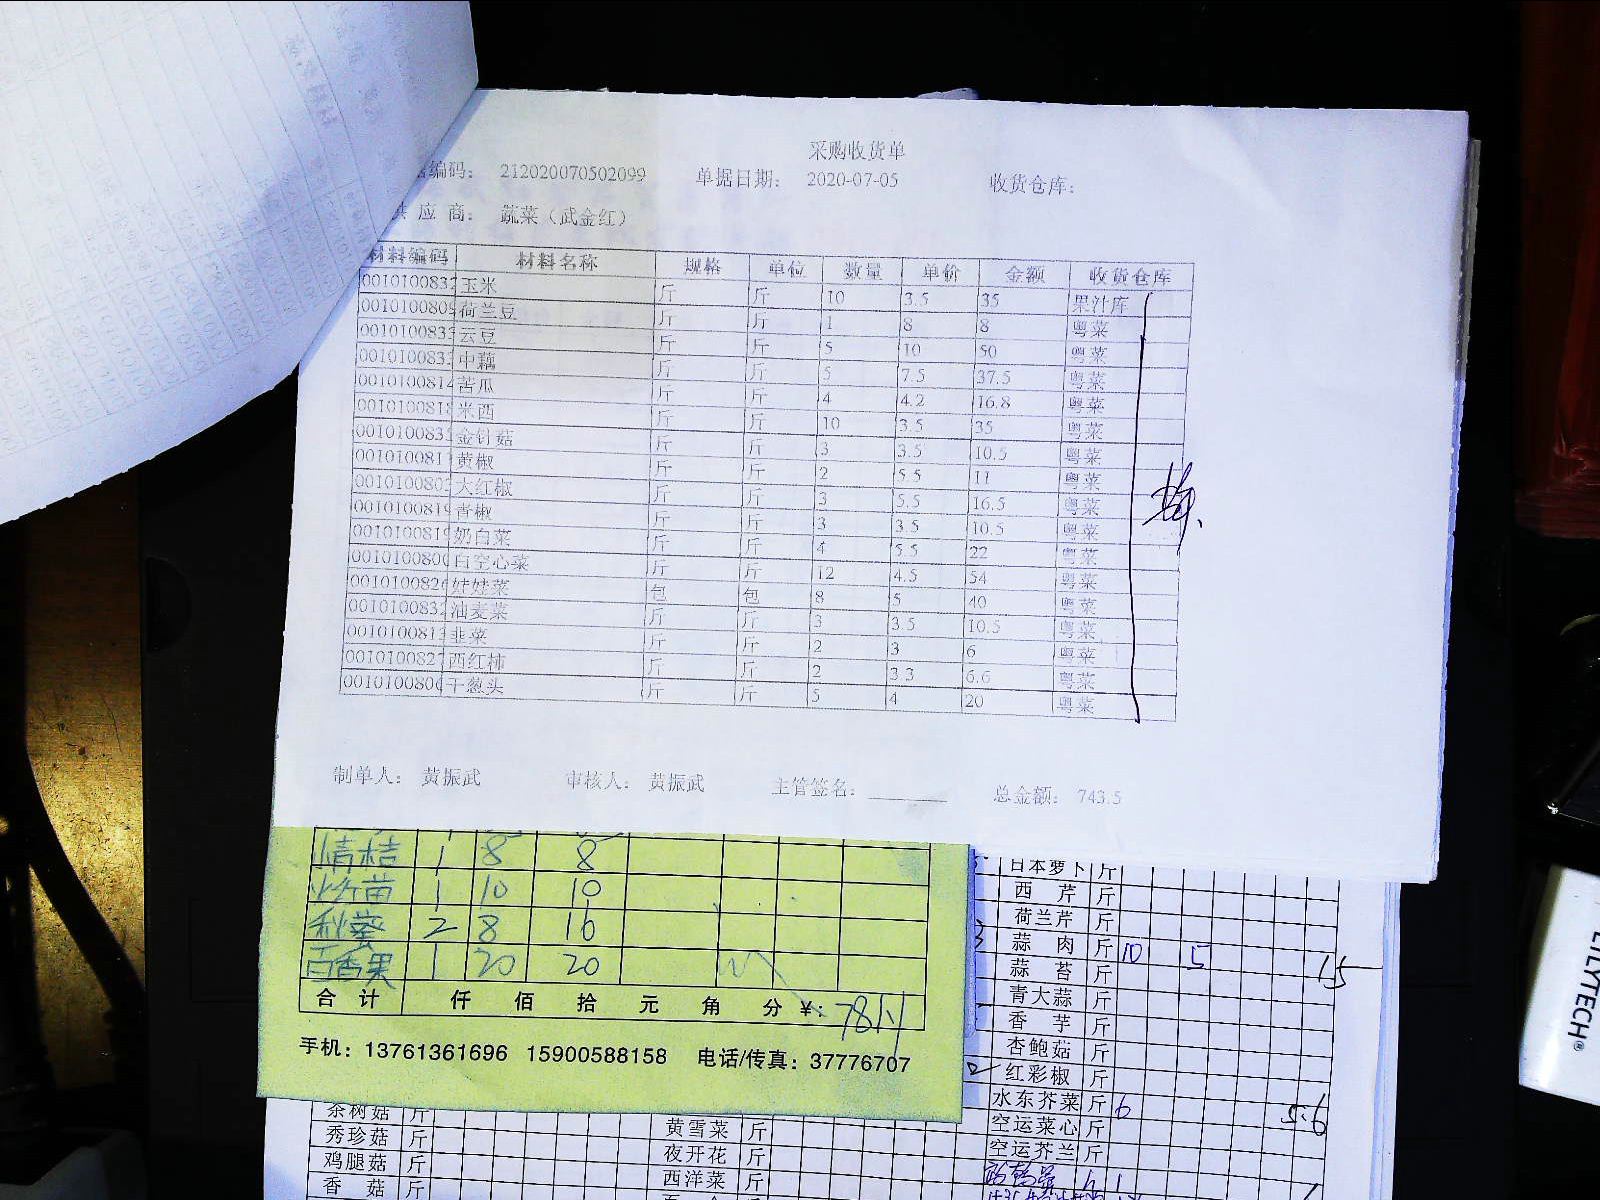 采购收货单
编码： 212020070502099 单据日期： 2020-07-05 收货仓库：
供应商： 蔬菜（武金红）
材料编码 材料名称 规格 单位 数量 单价 金额 收货仓库
0010100832 玉米 斤 斤 10 3.5 35 果汁库
001010080 荷兰豆 斤 斤 1 8 8 粤菜
001010083 云豆 斤 斤 5 10 50 粤菜
001010083 中藕 斤 斤 5 7.5 37.5 粤菜
0010100814 苦瓜 斤 斤 4 4.2 16.8 粤菜
001010081 米西 斤 斤 10 3.5 35 粤菜
001010083 金针菇 斤 斤 3 3.5 10.5 粤菜
001010081 黄椒 斤 斤 2 5.5 11 粤菜
001010080 大红椒 斤 斤 3 5.5 16.5 粤菜
001010081 青椒 斤 斤 3 3.5 10.5 粤菜
001010081 奶白菜 斤 斤 4 5.5 22 粤菜
001010080 白空心菜 斤 斤 12 4.5 54 粤菜
001010082 娃娃菜 包 包 8 5 40 粤菜
001010083 油麦菜 斤 斤 3 3.5 10.5 粤菜
001010081 韭菜 斤 斤 2 3 6 粤菜
001010082 西红柿 斤 斤 2 3.3 6.6 粤菜
001010080 干葱头 斤 斤 5 4 20 粤菜
制单人： 黄振武 审核人： 黄振武 主管签名： 总金额： 743.5
情桔 1 8 8
苗 1 10 10
秋葵 2 8 16
百香果 1 20 20
合计 仟 佰 拾 元 角 分 ¥：781
手机：13761361696 15900588158 电话/传真：37776707
日本萝卜 斤
西芹 斤
荷兰芹 斤
蒜肉 斤 10 5 15
蒜苔 斤
青大蒜 斤
香芋 斤
杏鲍菇 斤
红彩椒 斤
水东芥菜 斤 6 5.6
空运菜心 斤
空运芥兰 斤
茶树菇 斤
秀珍菇 斤
鸡腿菇 斤
香菇 斤
黄雪菜 斤
夜开花 斤
西洋菜 斤
LILYTECH®